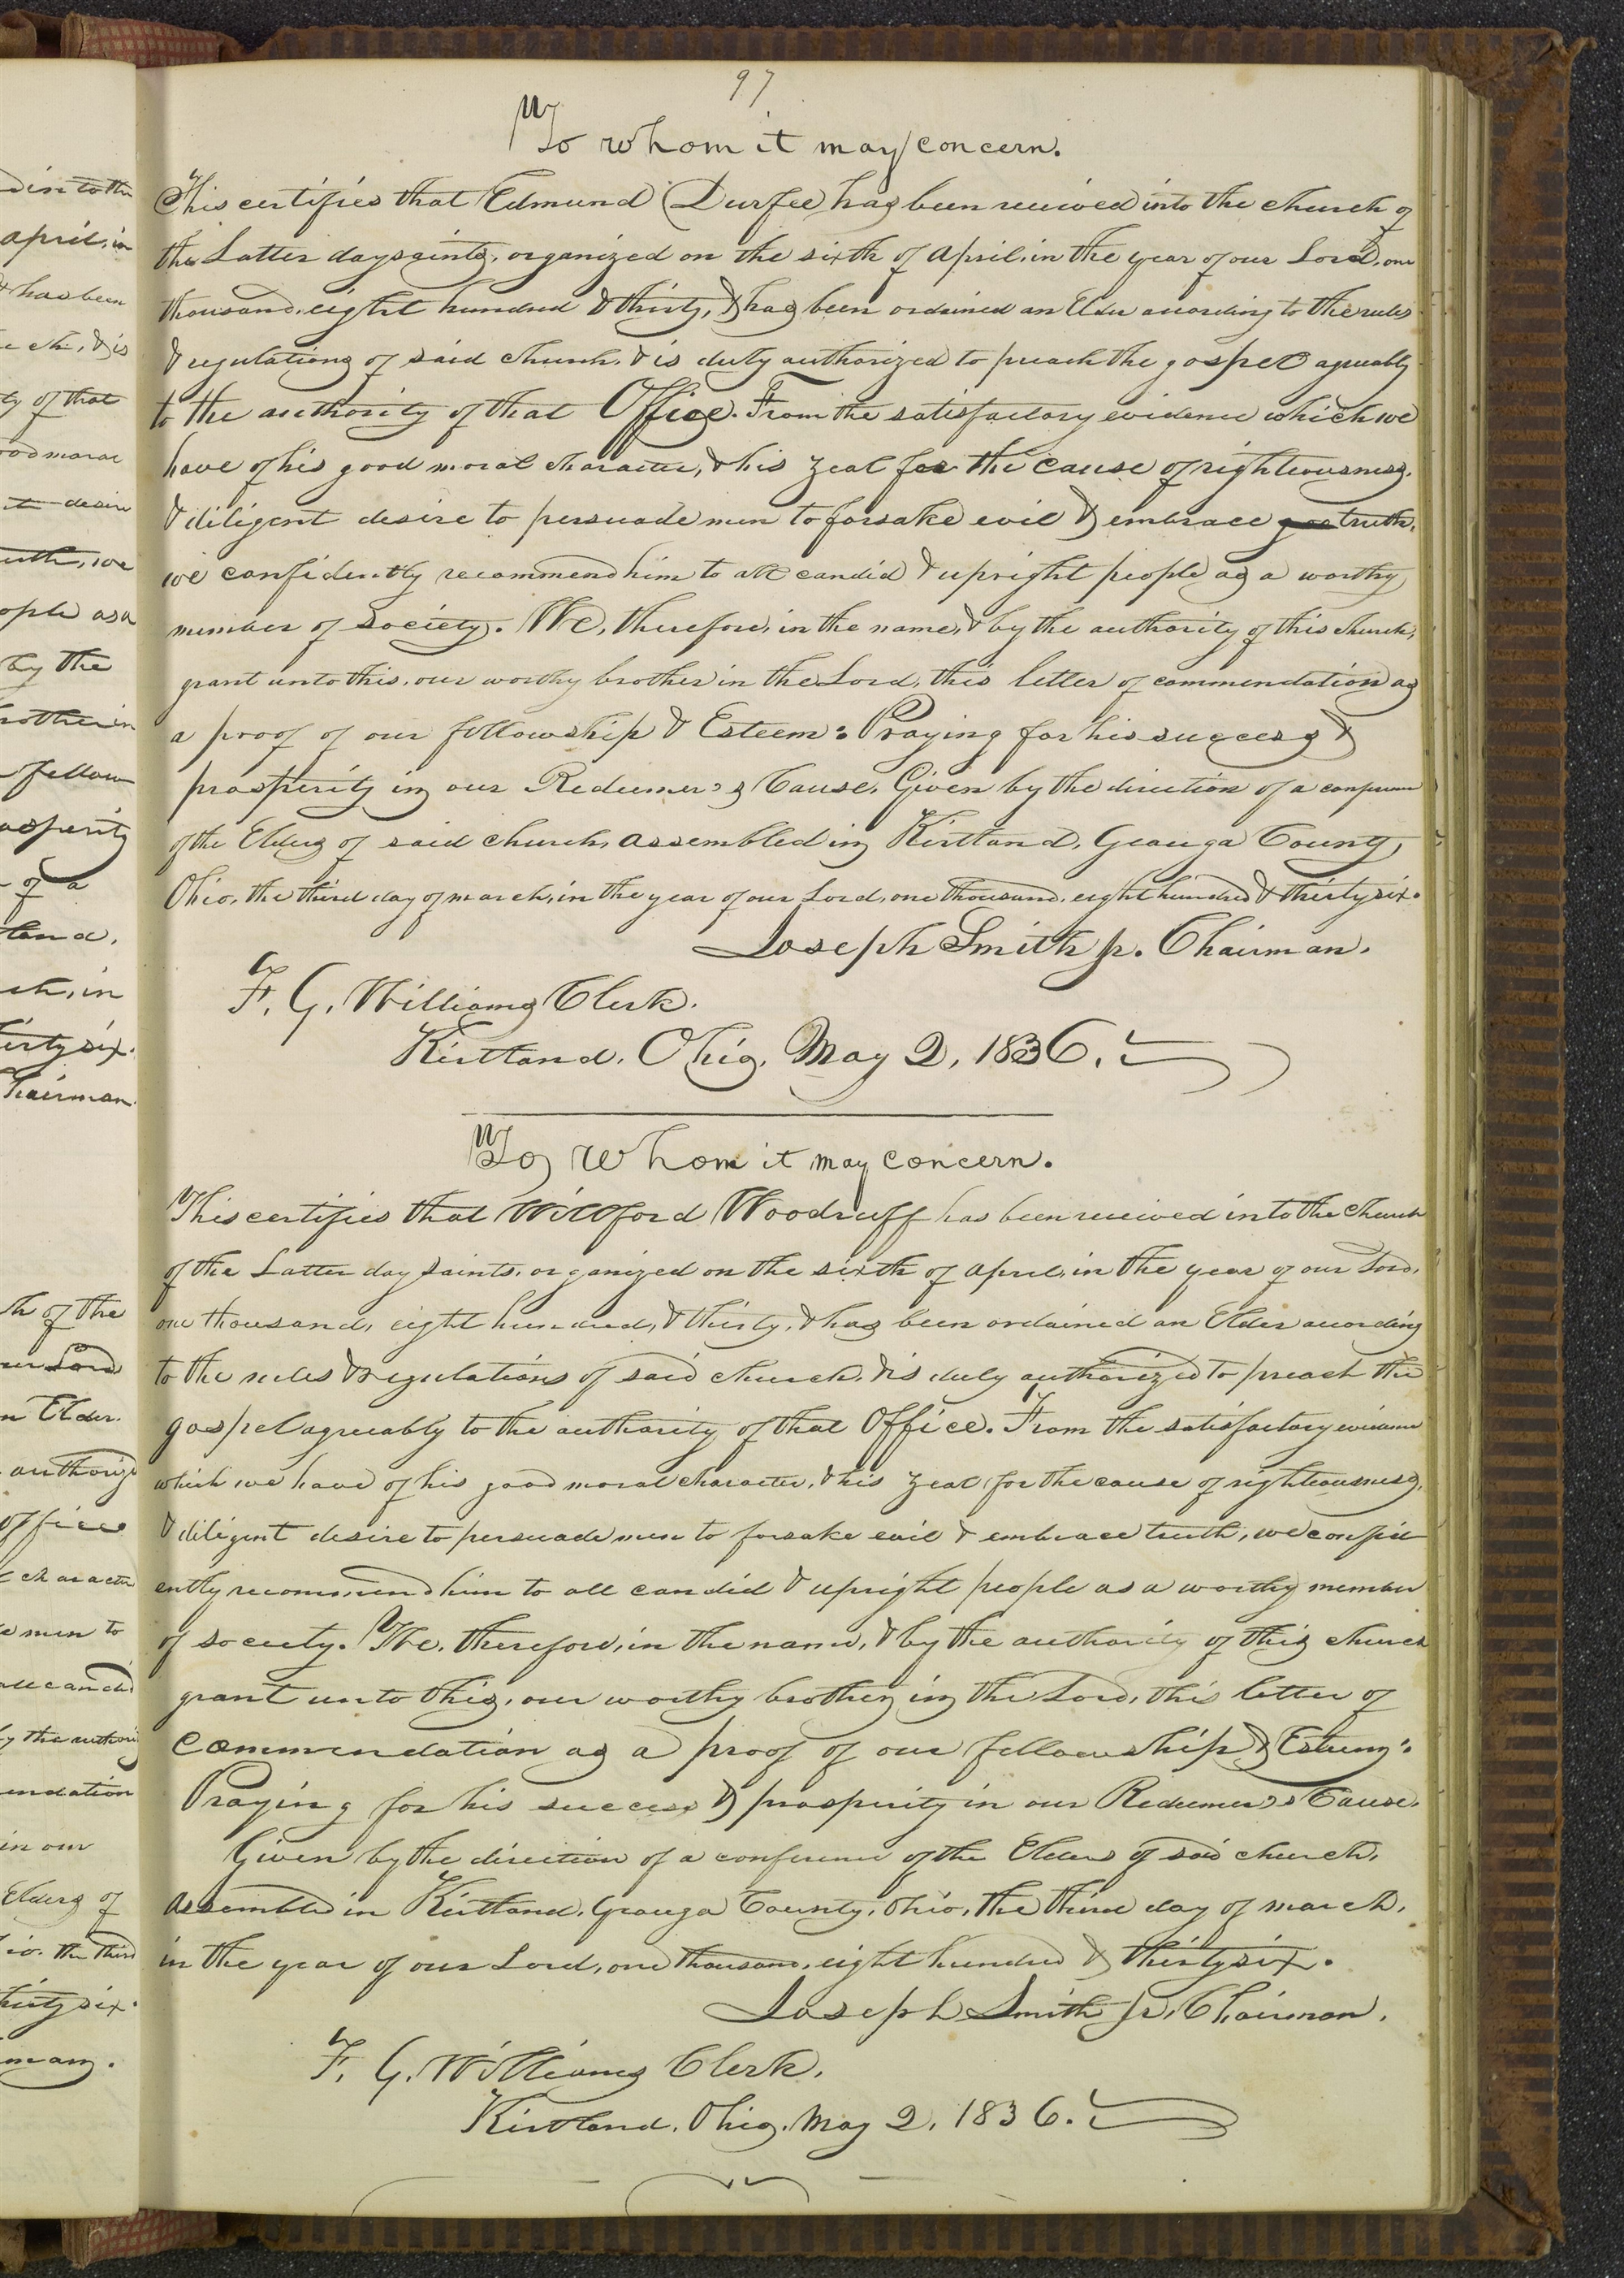 97
To whom it may concern.
This certifies that Edmund Durfee has been received into the church of
the Latter day saints, organized on the sixth of april, in the year of our Lord, one
thousand, eight hundred & thirty, & has been ordained an Elder according to the rules
& regulations of said church, & is duly authorized to preach the gospel agreeably
to the authority of that Office. From the satisfactory evidence which we
have of his good moral character, & his zeal for the cause of righteousness,
& diligent desire to persuade men to forsake evil & embrace truth,
we confidently recommend him to all candid & upright people as a worthy
member of Society. We, therefore, in the name, & by the authority of this church,
grant unto this, our worthy brother in the Lord, this letter of commendation as
a proof of our fellowship & Esteem: Praying for his success &
prosperity in our Redeemer's Cause. Given by the direction of a conference
of the Elders of said church, assembled in Kirtland, Geauga County,
Ohio, the third day of march, in the year of our Lord, one thousand, eight hundred & thirty six.
Joseph Smith jr. Chairman.
F. G. Williams Clerk.
Kirtland, Ohio, May 2, 1836.
To whom it may concern.
This certifies that Willford Woodruff has been received into the church
of the Latter day saints, organized on the sixth of april, in the year of our Lord,
one thousand, eight hundred, & thirty, & has been ordained an Elder according
to the rules & regulations of said church, & is duly authorized to preach the
gospel agreeably to the authority of that Office. From the satisfactory evidence
which we have of his good moral character, & his zeal for the cause of righteousness,
& diligent desire to persuade men to forsake evil & embrace truth, we confid
ently recommend him to all candid & upright people as a worthy member
of society. We, therefore, in the name, & by the authority of this church
grant unto this, our worthy brother in the Lord, this letter of
commendation as a proof of our fellowship & Esteem:
Praying for his success & prosperity in our Redeemer's Cause.
Given by the direction of a conference of the Elders of said church,
assembled in Kirtland, Geauga County, Ohio, the third day of march,
in the year of our Lord, one thousand, eight hundred & thirty six.
Joseph Smith jr. Chairman.
F. G. Williams Clerk.
Kirtland, Ohio, May 2, 1836.